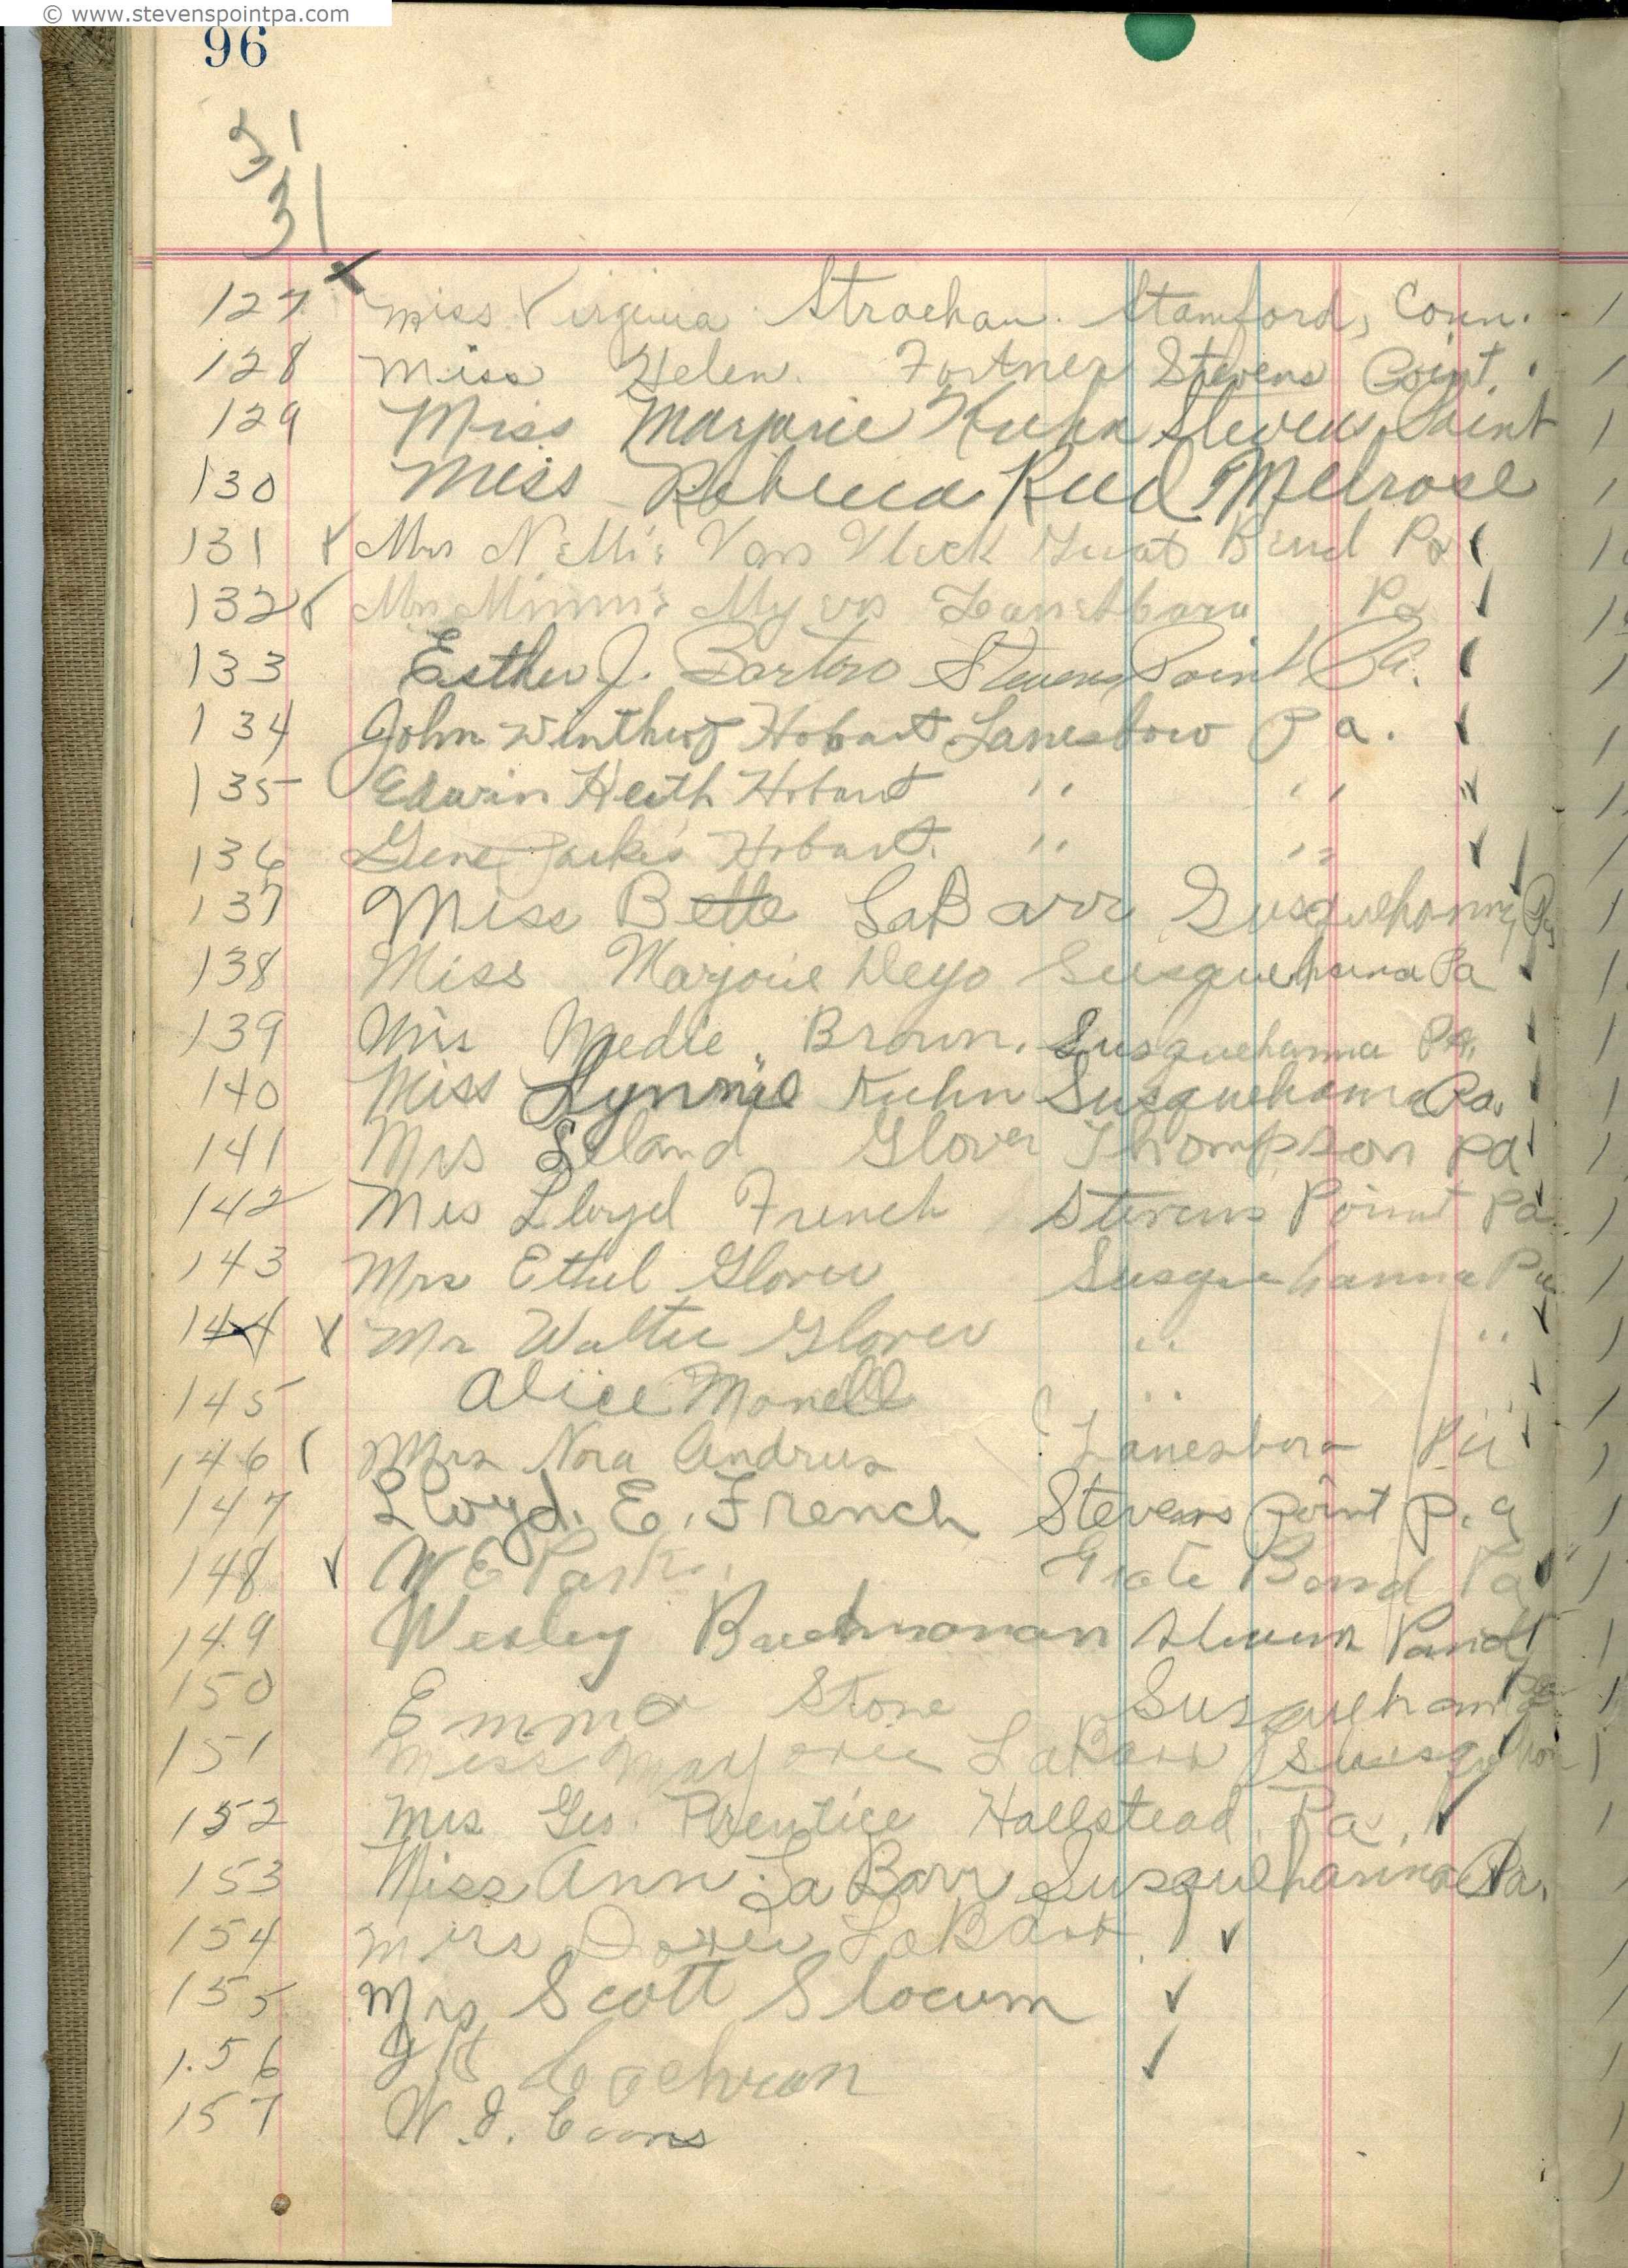 © www.stevenspointpa.com
96
31
31
127 Miss Virginia Strachan. Stamford, Conn.
128 Miss Helen. Fortner Stevens Point.
129 Miss Marjorie Kuhn Stevens Point
130 Miss Rebecca Reed Melrose
131 Mrs Nellie Van Vleck Great Bend Pa
132 Mrs Minnie Myers Lanesboro Pa
133 Esther J. Bartro Stevens Point Pa.
134 John Winthrop Hobart Lanesboro Pa.
135 Edwin Heith Hobart " "
136 Gene Hobart. " "
137 Miss Bette LaBarr Susquehanna, Pa
138 Miss Marjorie Deyo Susquehanna Pa
139 Miss Medie Brown. Susquehanna Pa.
140 Miss Lynnie Kuhn Susquehanna Pa.
141 Mrs Leland Glover Thompson Pa
142 Mrs Lloyd French Stevens Point Pa
143 Mrs Ethel Glover Susquehanna Pa
144 Mr Walter Glover " "
145 Alice Monell " "
146 Mrs Nora Andrus Lanesboro Pa
147 Lloyd. E. French Stevens Point P.a
148 W E Grate Bend Pa
149 Wesley Stevens
150 Emma Stone Susquehanna
151 Miss Marjorie LaBarr Susquehan
152 Mrs Geo. Prentice Hallstead. Pa.
153 Miss Ann LaBarr Susquehanna Pa.
154 LaBarr
155 Mrs Scott Slocum
1.56 Cochran
157 W. J. Coons